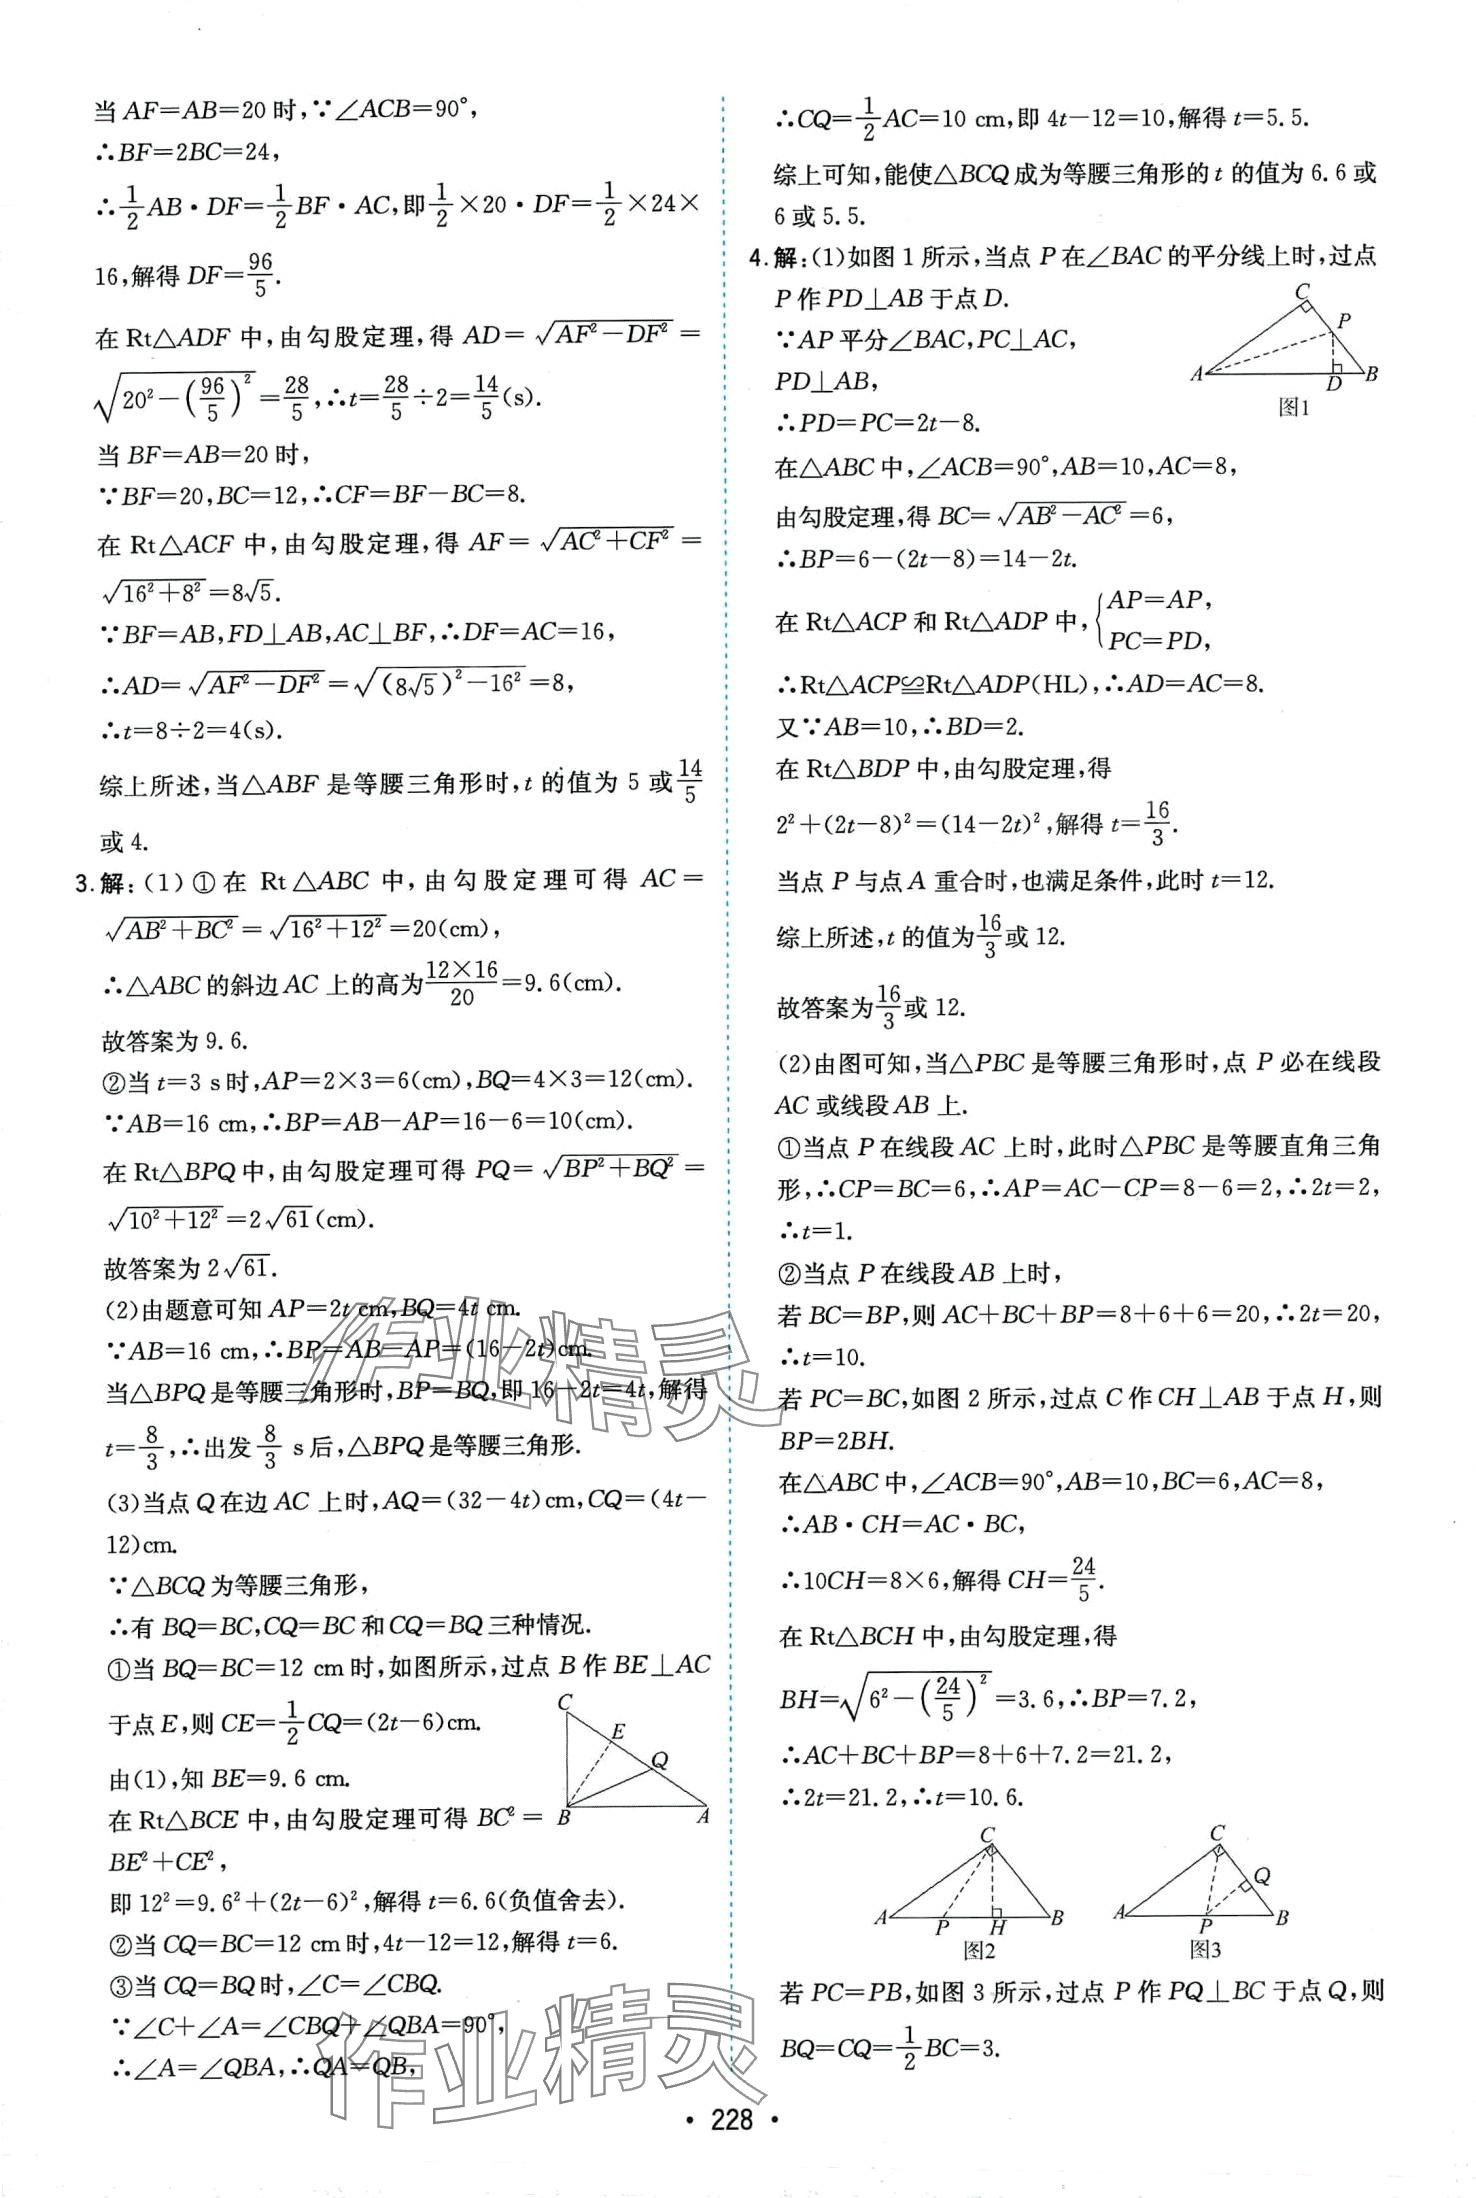 当 AF=AB=20 时,∵∠ACB=90°,
∴BF=2BC=24,
∴1/2AB·DF=1/2BF·AC,即1/2×20·DF=1/2×24×
16,解得 DF=96/5.
在 Rt△ADF 中,由勾股定理,得 AD=√(AF²-DF²)=
√(20²-(96/5)²)=28/5,∴t=28/5÷2=14/5(s).
当 BF=AB=20 时,
∵BF=20,BC=12,∴CF=BF-BC=8.
在 Rt△ACF 中,由勾股定理,得 AF=√(AC²+CF²)=
√(16²+8²)=8√5.
∵BF=AB,FD⊥AB,AC⊥BF,∴DF=AC=16,
∴AD=√(AF²-DF²)=√((8√5)²-16²)=8,
∴t=8÷2=4(s).
综上所述,当△ABF 是等腰三角形时,t 的值为 5 或14/5
或 4.
3.解:(1)①在 Rt△ABC 中,由勾股定理可得 AC=
√(AB²+BC²)=√(16²+12²)=20(cm),
∴△ABC的斜边AC 上的高为(12×16)/20=9.6(cm).
故答案为 9.6.
②当 t=3 s时,AP=2×3=6(cm),BQ=4×3=12(cm).
∵AB=16 cm,∴BP=AB-AP=16-6=10(cm).
在 Rt△BPQ 中,由勾股定理可得 PQ=√(BP²+BQ²)=
√(10²+12²)=2√61(cm).
故答案为 2√61.
(2)由题意可知 AP=2t cm,BQ=4t cm.
∵AB=16 cm,∴BP=AB-AP=(16-2t)cm.
当△BPQ 是等腰三角形时,BP=BQ,即 16-2t=4t,解得
t=8/3,∴出发8/3 s后,△BPQ是等腰三角形.
(3)当点 Q 在边 AC 上时,AQ=(32-4t)cm,CQ=(4t-
12)cm.
∵△BCQ 为等腰三角形,
∴有 BQ=BC,CQ=BC 和 CQ=BQ 三种情况.
①当 BQ=BC=12 cm时,如图所示,过点 B 作 BE⊥AC
于点 E,则 CE=1/2CQ=(2t-6)cm.
由(1),知 BE=9.6 cm.
在 Rt△BCE 中,由勾股定理可得 BC²=
BE²+CE²,
即 12²=9.6²+(2t-6)²,解得 t=6.6(负值舍去).
②当 CQ=BC=12 cm时,4t-12=12,解得 t=6.
③当 CQ=BQ 时,∠C=∠CBQ.
∵∠C+∠A=∠CBQ+∠QBA=90°,
∴∠A=∠QBA,∴QA=QB,
C
E
Q
B
A
∴CQ=1/2AC=10 cm,即 4t-12=10,解得 t=5.5.
综上可知,能使△BCQ成为等腰三角形的 t 的值为 6.6 或
6 或 5.5.
4.解:(1)如图 1 所示,当点 P 在∠BAC的平分线上时,过点
P 作 PD⊥AB 于点 D.
∵AP 平分∠BAC,PC⊥AC,
PD⊥AB,
∴PD=PC=2t-8.
C
P
A
D
B
图1
在△ABC 中,∠ACB=90°,AB=10,AC=8,
由勾股定理,得 BC=√(AB²-AC²)=6,
∴BP=6-(2t-8)=14-2t.
在 Rt△ACP 和 Rt△ADP 中,{AP=AP,
PC=PD,
∴Rt△ACP≌Rt△ADP(HL),∴AD=AC=8.
又∵AB=10,∴BD=2.
在 Rt△BDP 中,由勾股定理,得
2²+(2t-8)²=(14-2t)²,解得 t=16/3.
当点 P 与点 A 重合时,也满足条件,此时 t=12.
综上所述,t 的值为16/3或 12.
故答案为16/3或 12.
(2)由图可知,当△PBC 是等腰三角形时,点 P 必在线段
AC 或线段 AB 上.
①当点 P 在线段 AC 上时,此时△PBC 是等腰直角三角
形,∴CP=BC=6,∴AP=AC-CP=8-6=2,∴2t=2,
∴t=1.
②当点 P 在线段 AB 上时,
若 BC=BP,则 AC+BC+BP=8+6+6=20,∴2t=20,
∴t=10.
若 PC=BC,如图 2 所示,过点 C 作 CH⊥AB 于点 H,则
BP=2BH.
在△ABC 中,∠ACB=90°,AB=10,BC=6,AC=8,
∴AB·CH=AC·BC,
∴10CH=8×6,解得 CH=24/5.
在 Rt△BCH 中,由勾股定理,得
BH=√(6²-(24/5)²)=3.6,∴BP=7.2,
∴AC+BC+BP=8+6+7.2=21.2,
∴2t=21.2,∴t=10.6.
C
A
P
H
B
图2
C
Q
A
P
B
图3
若 PC=PB,如图 3 所示,过点 P 作 PQ⊥BC 于点 Q,则
BQ=CQ=1/2BC=3.
作业精灵
作业精灵
·228·